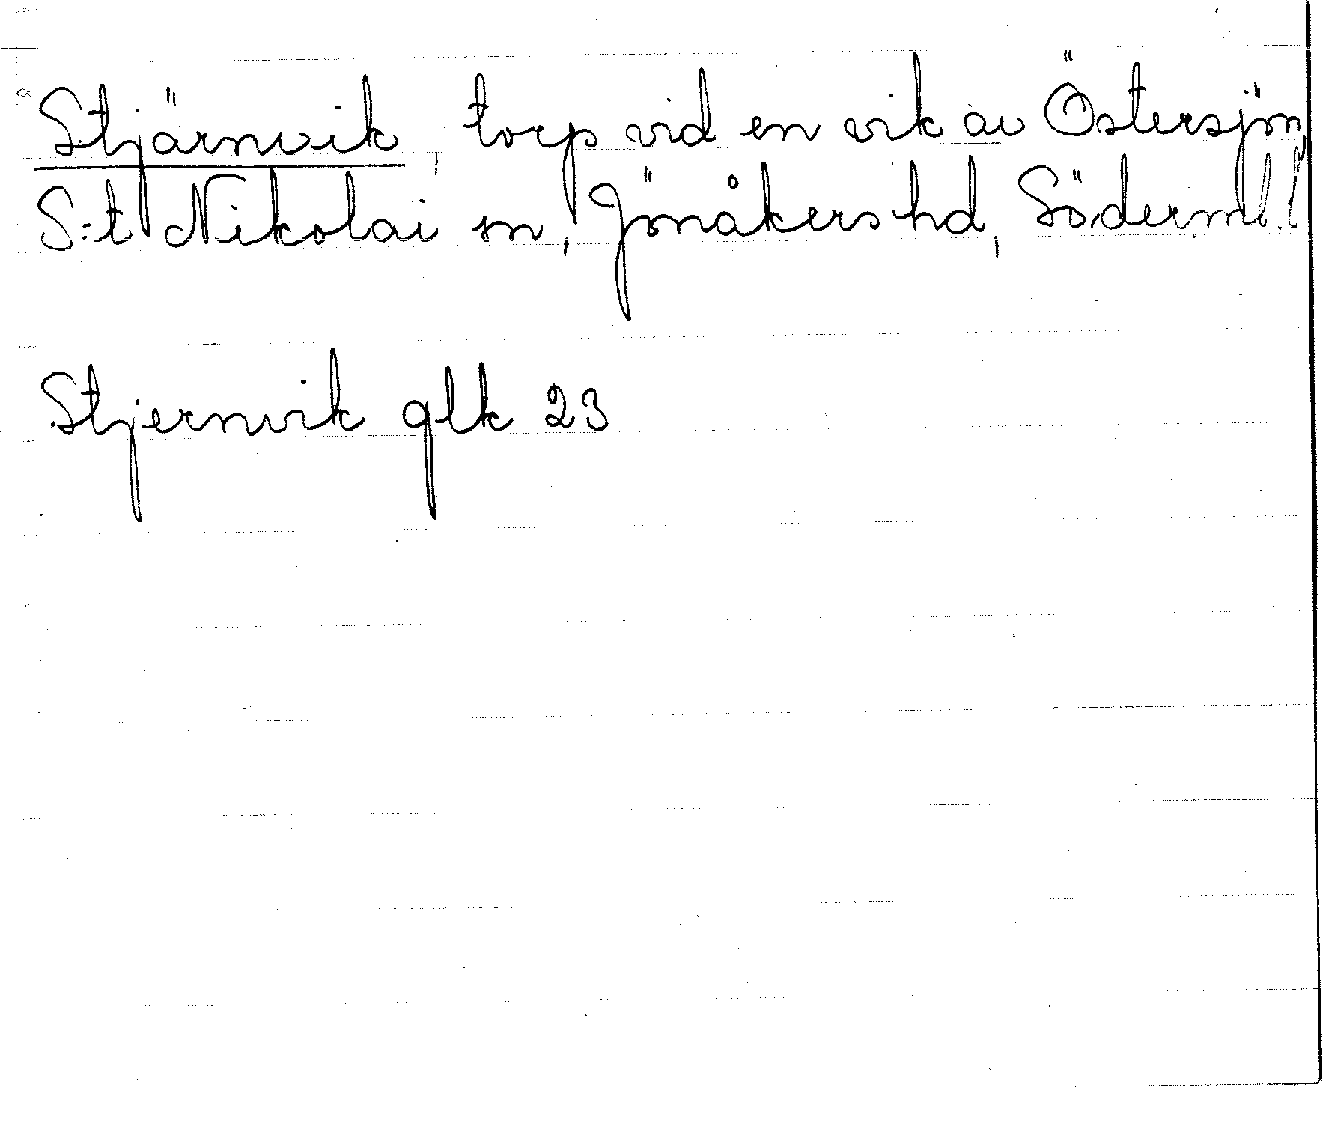 Stjärnvik, torp vid en vik av Östersjön,
S:t Nikolai sn, Jönåkers hd, Söderml. l
Stjernvik glk 23